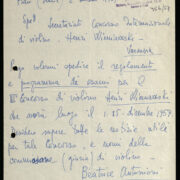 Spett. Secretariat Concorso Internazionale
di violino - Henri Wieniawski -
Varsavia
volermi spedire il regolamento
e programma da esami per il
III Concorso di violino Henri Wieniawski
che avrà luogo il 1. 15 dicembre 1957
sapere tutte le notizie utili
per tale Concorso, e nomi della
commissione (giuria) di violino -
Beatrice Antonioni